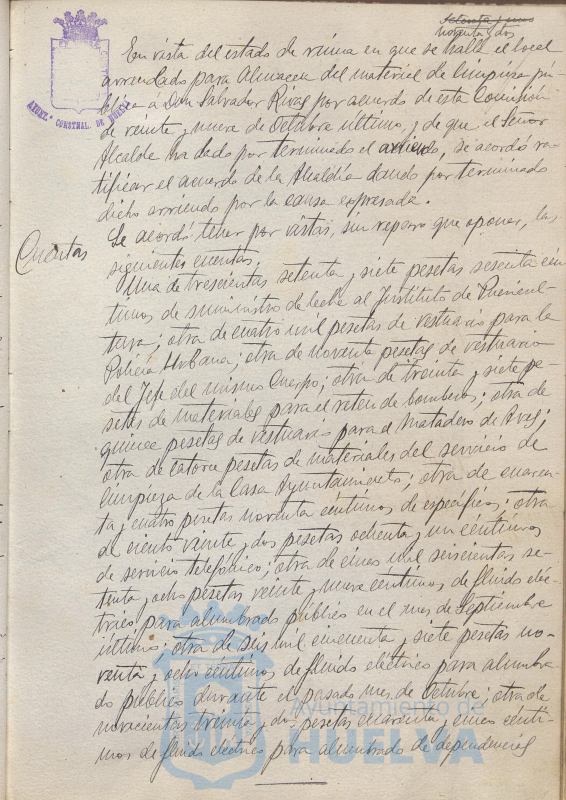 noventa y dos
AYUNT.º CONSTNAL. DE HUELVA
En vista del estado de ruina en que se halla el local
arrendado para Almacen del material de limpieza pú-
blica a Don Salvador Rivas por acuerdo de esta Comisión
de veinte y nueve de Octubre último, y de que el Señor
Alcalde ha dado por terminado el arriendo, se acordó ra-
tificar el acuerdo de la Alcaldía dando por terminado
dicho arriendo por la causa expresada.
Cuentas
Se acordó tener por vistas, sin reparo que oponer, las
siguientes cuentas:
Una de trescientas setenta y siete pesetas sesenta cén-
timos de suministro de leche al Instituto de Puericul-
tura; otra de cuatro mil pesetas de vestuario para la
Policía Urbana; otra de noventa pesetas de vestuario
del Jefe del mismo Cuerpo; otra de treinta y siete pe-
setas de materiales para el reten de bomberos; otra de
quince pesetas de vestuario para el Matadero de Aves;
otra de catorce pesetas de materiales del servicio de
limpieza de la Casa Ayuntamiento; otra de cuaren-
ta y cuatro pesetas noventa céntimos de específicos; otra
de ciento veinte y dos pesetas ochenta y un céntimos
de servicio telefónico; otra de cinco mil seiscientas se-
tenta y ocho pesetas veinte y nueve céntimos de fluido eléc-
trico para alumbrado público en el mes de Septiembre
último; otra de seis mil cincuenta y siete pesetas no-
venta y ocho céntimos de fluido eléctrico para alumbra-
do público durante el pasado mes de Octubre; otra de
novecientas treinta y dos pesetas cuarenta y cinco cénti-
mos de fluido eléctrico para alumbrado de dependencias
Ayuntamiento de
HUELVA